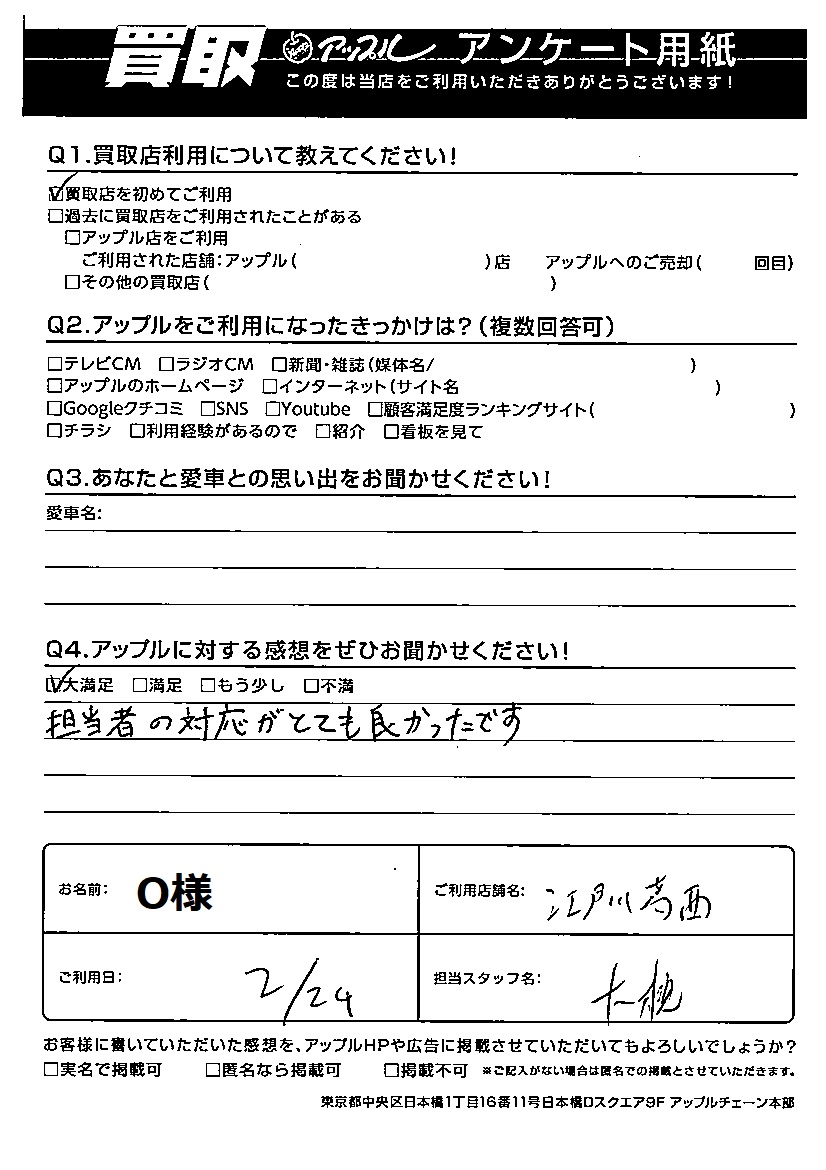 買取 アップル アンケート用紙
この度は当店をご利用いただきありがとうございます!
Q1.買取店利用について教えてください!
☑買取店を初めてご利用
□過去に買取店をご利用されたことがある
□アップル店をご利用
ご利用された店舗:アップル( )店 アップルへのご売却( 回目)
□その他の買取店( )
Q2.アップルをご利用になったきっかけは?(複数回答可)
□テレビCM □ラジオCM □新聞・雑誌(媒体名/ )
□アップルのホームページ □インターネット(サイト名 )
□Googleクチコミ □SNS □Youtube □顧客満足度ランキングサイト( )
□チラシ □利用経験があるので □紹介 □看板を見て
Q3.あなたと愛車との思い出をお聞かせください!
愛車名:
Q4.アップルに対する感想をぜひお聞かせください!
☑大満足 □満足 □もう少し □不満
担当者の対応がとても良かったです
お名前: O様 ご利用店舗名: 江戸川葛西
ご利用日: 2/24 担当スタッフ名:
お客様に書いていただいた感想を、アップルHPや広告に掲載させていただいてもよろしいでしょうか?
□実名で掲載可 □匿名なら掲載可 □掲載不可 ※ご記入がない場合は匿名での掲載とさせていただきます。
東京都中央区日本橋1丁目16番11号日本橋Dスクエア9F アップルチェーン本部